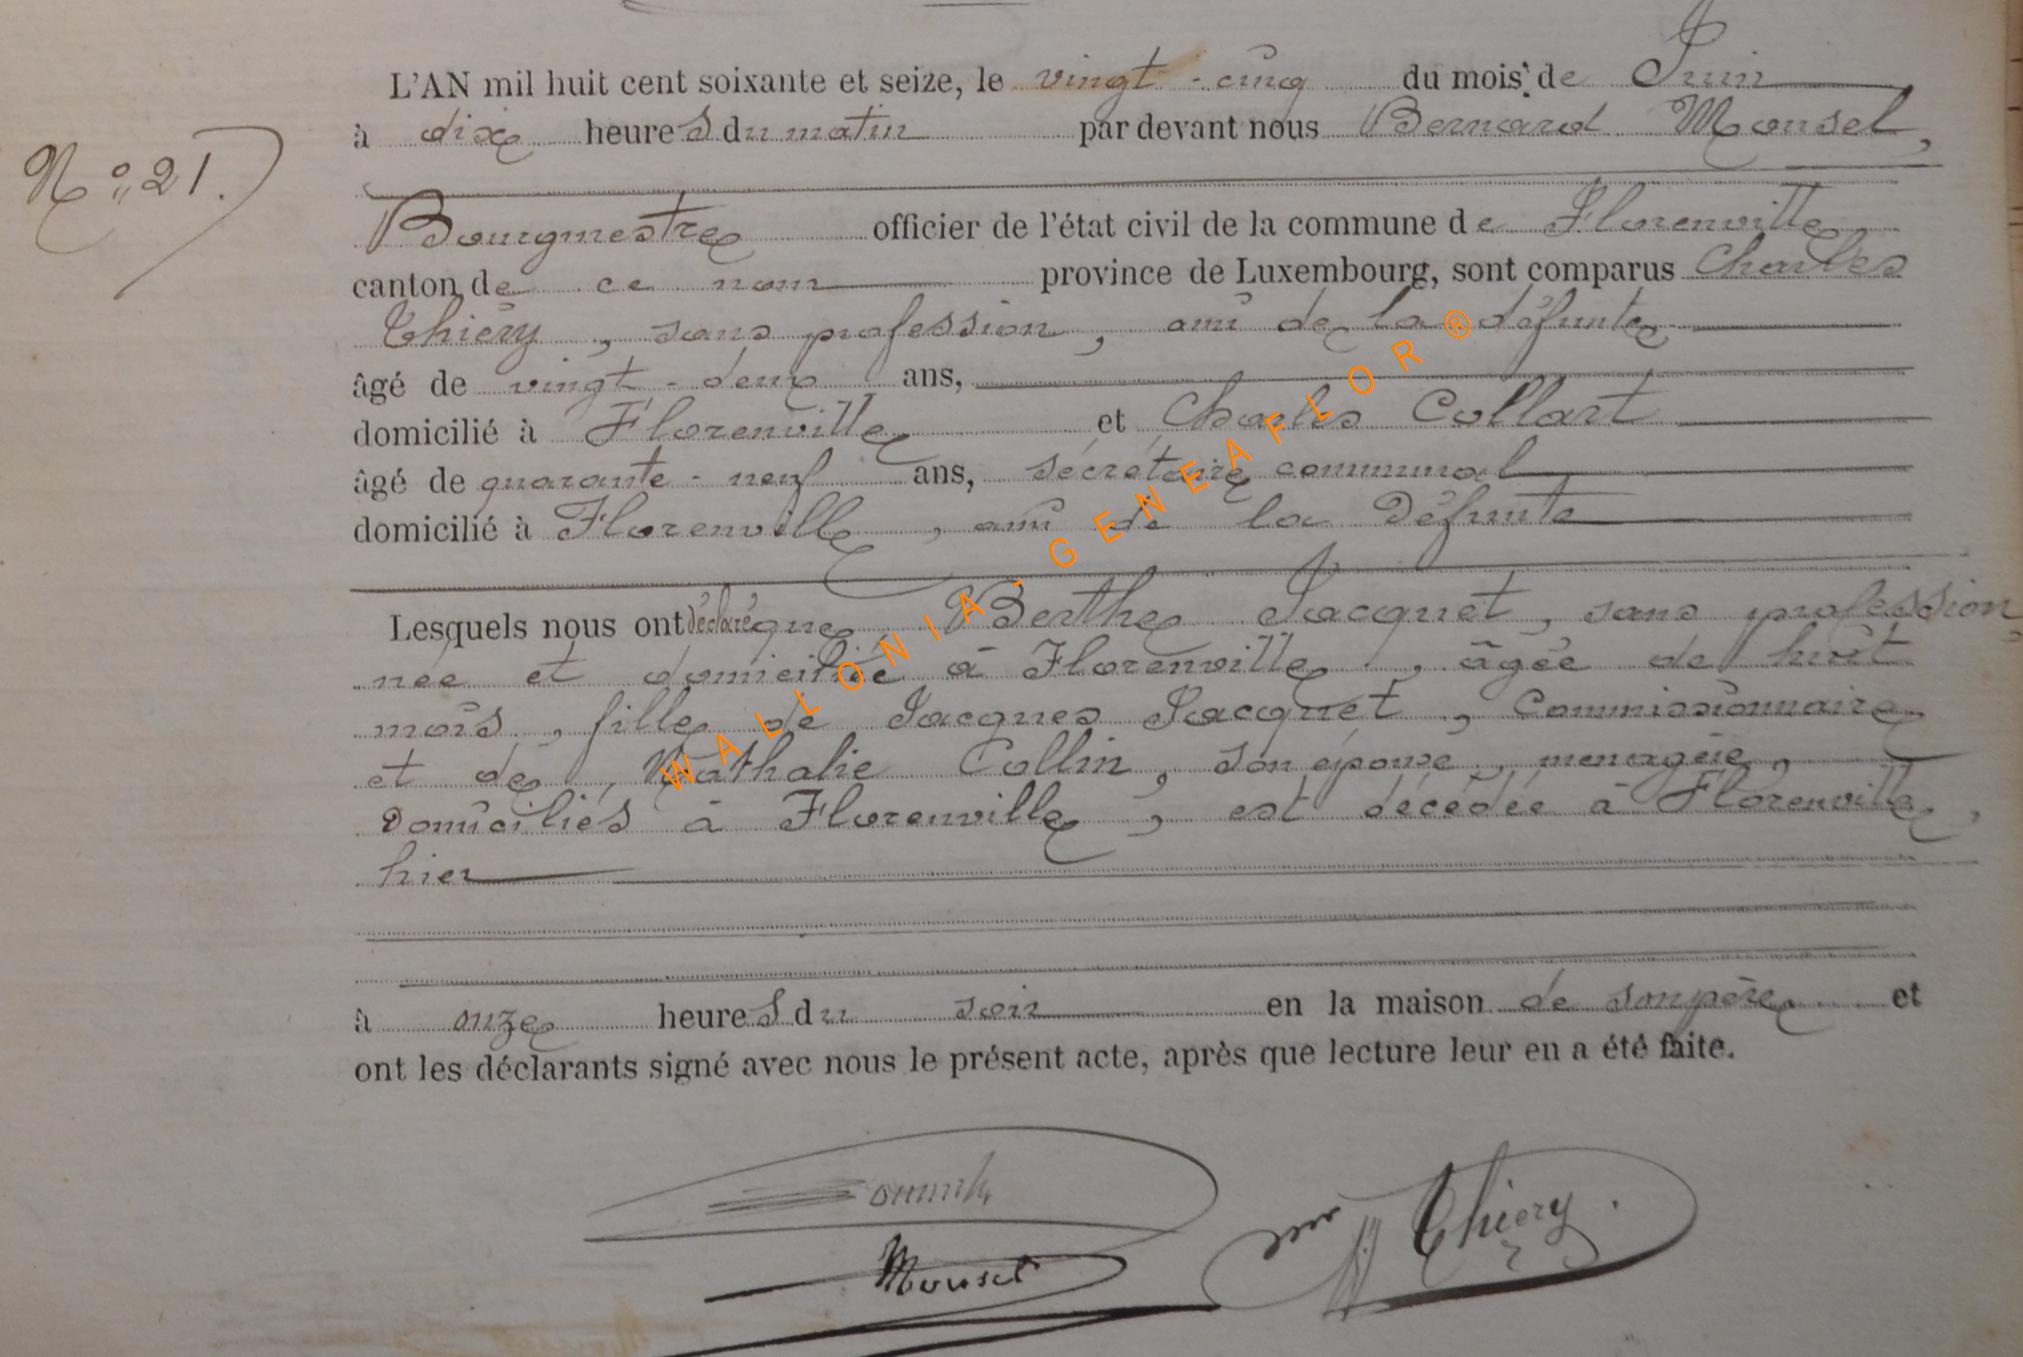 L'AN mil huit cent soixante et seize, le vingt-cinq du mois de Juin
à dix heures du matin par devant nous Bernard Mousel,
N° 21.
Bourgmestre officier de l'état civil de la commune de Florenville
canton de ce nom province de Luxembourg, sont comparus Charles
Thiéry, sans profession, ami de la défunte
âgé de vingt-deux ans,
domicilié à Florenville et Charles Collart
âgé de quarante-neuf ans, sécrétaire communal
domicilié à Florenville, ami de la Défunte
Lesquels nous ont déclaré que Berthe Jacquet, sans profession,
née et domiciliée à Florenville, âgée de huit
mois, fille de Jacques Jacquet, Commissionnaire
et de Nathalie Collin, son épouse, menagère,
Domiciliés à Florenville, est décédée à Florenville,
hier
à onze heures du soir en la maison de son père et
ont les déclarants signé avec nous le présent acte, après que lecture leur en a été faite.
Thiery
Mousel
WALLONIA - GENEAFLOR®